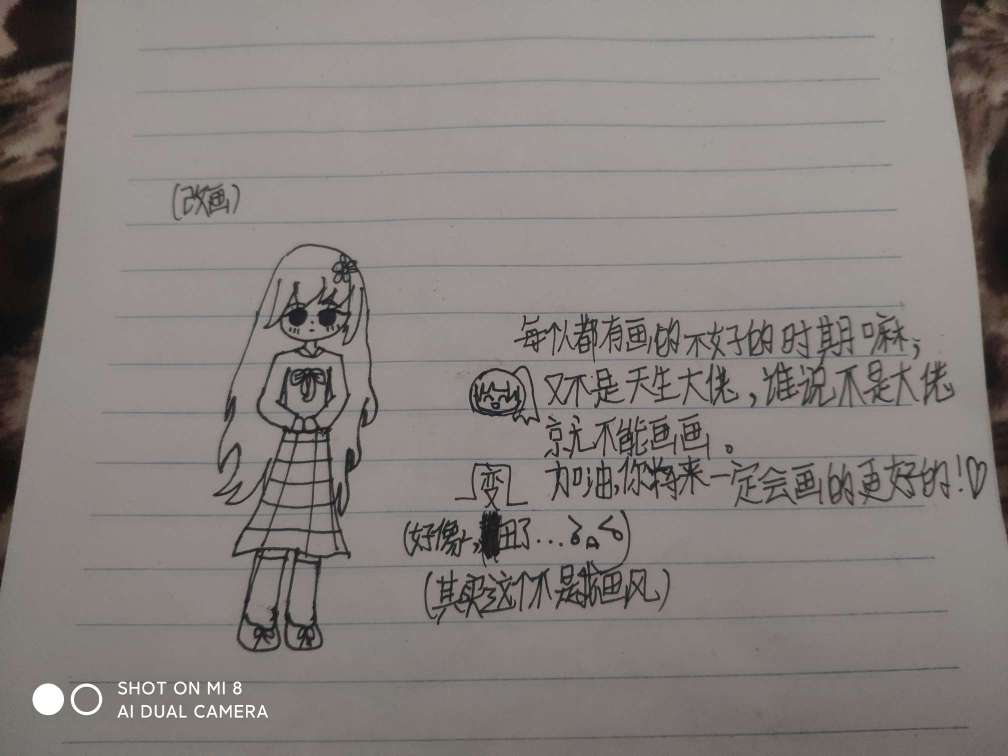 (改画)
每个人都有画的不好的时期嘛，
又不是天生大佬，谁说不是大佬
就不能画画。
加油，你将来一定会画的更好的！♡
变
(好像，田了...
(其实这个不是我画风)
SHOT ON MI 8
AI DUAL CAMERA